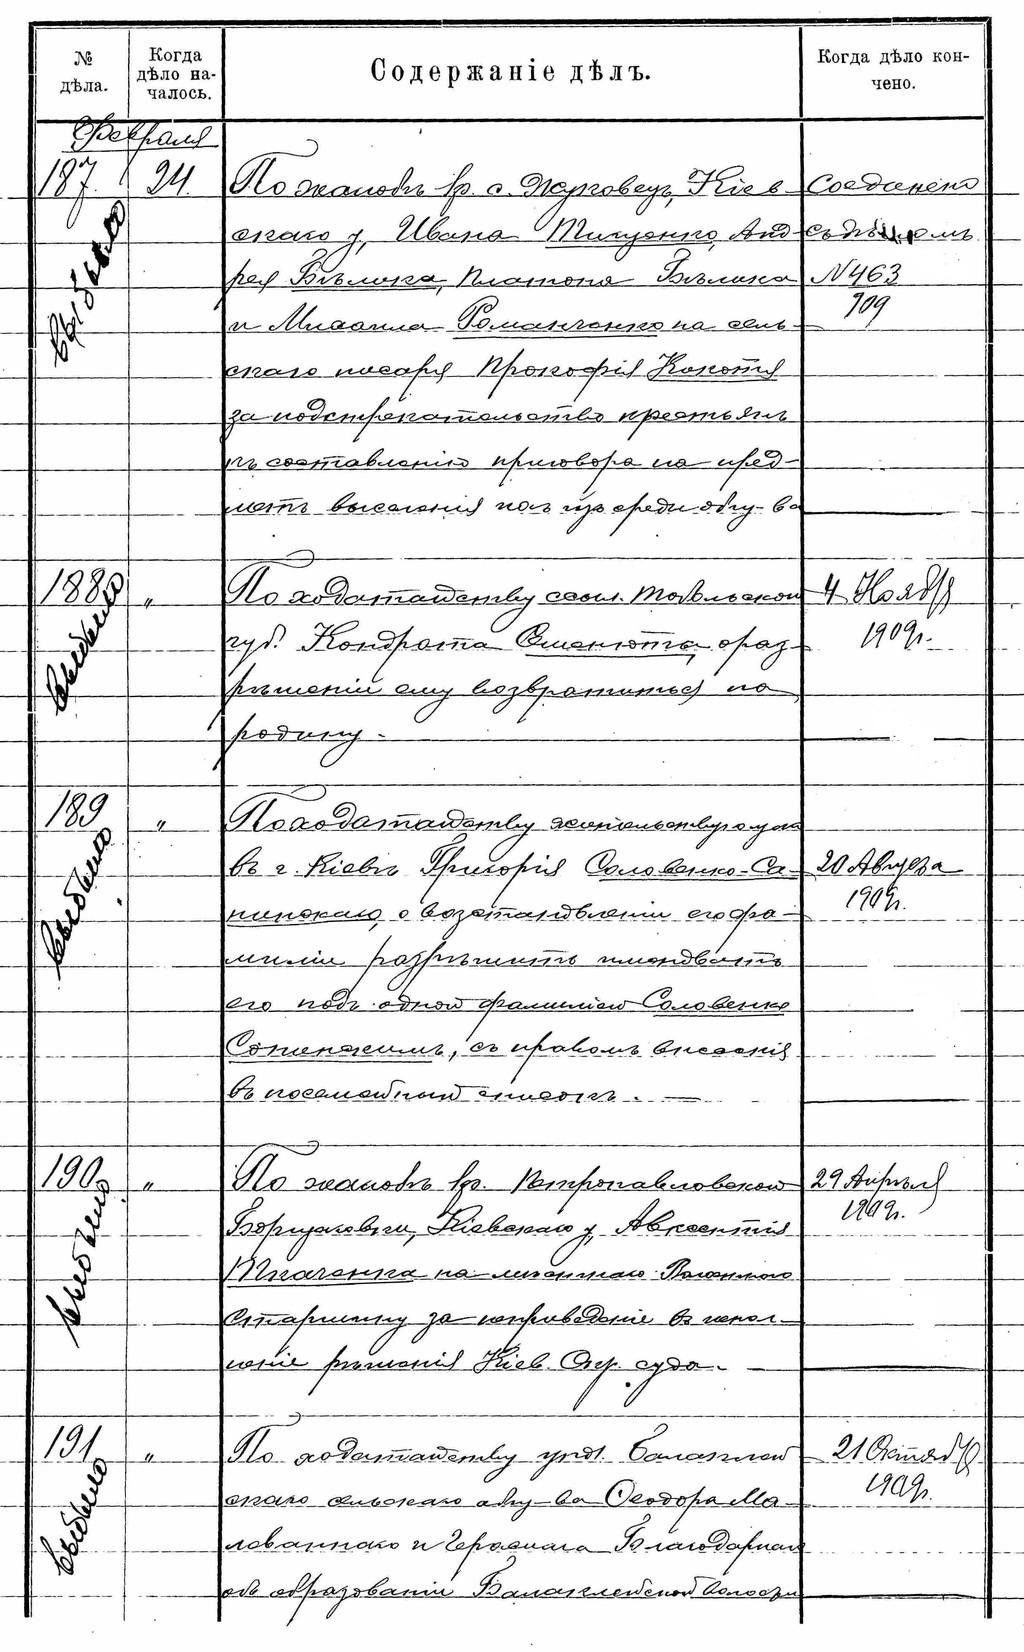 № дѣла.
Когда дѣло началось.
Содержаніе дѣлъ.
Когда дѣло кончено.
Февраля
187. 24. По жалобѣ кр. с. Жуковец, Кіев-
скаго у, Ивана Тищенко, Анд-
рея Бѣлика, Платона Бѣлика
и Михаила Романченко на сель-
скаго писаря Прокофія Кокотя
за подстрекательство крестьянъ
къ составленію приговора на пред-
метъ выселенія ихъ изъ среды общ-ва
Соединено
съ дѣломъ
№ 463
909
выбыло
188 " По ходатайству ссыл. Тобольской
губ. Кондрата Семенюта, о раз-
рѣшеніи ему возвратиться на
родину.
4 Ноября
1909 г.
выбыло
189 " По ходатайству жительствующаго
въ г. Кіевѣ Григорія Соловенко-Са-
о возстановленіи его фа-
миліи разрѣшить именовать
его подъ одной фамиліей Соловенко
съ правомъ внесенія
въ посемейный списокъ.
20 Августа
1909 г.
выбыло
190 " По жалобѣ кр. Петропавловской
Борщаговки, Кіевскаго у, Авксентія
Ткаченка на мѣстнаго Волостного
Старшину за неприведеніе въ испол-
неніе рѣшенія Кіев. Окр. суда.
29 Апрѣля
1909 г.
выбыло
191 " По ходатайству упол. Балаклей
скаго сельскаго общ-ва Ѳеодора Ма-
лованнаго и Герасима Благодарнаго
объ образованіи Балаклейской волости
21 Октября
1909 г.
выбыло